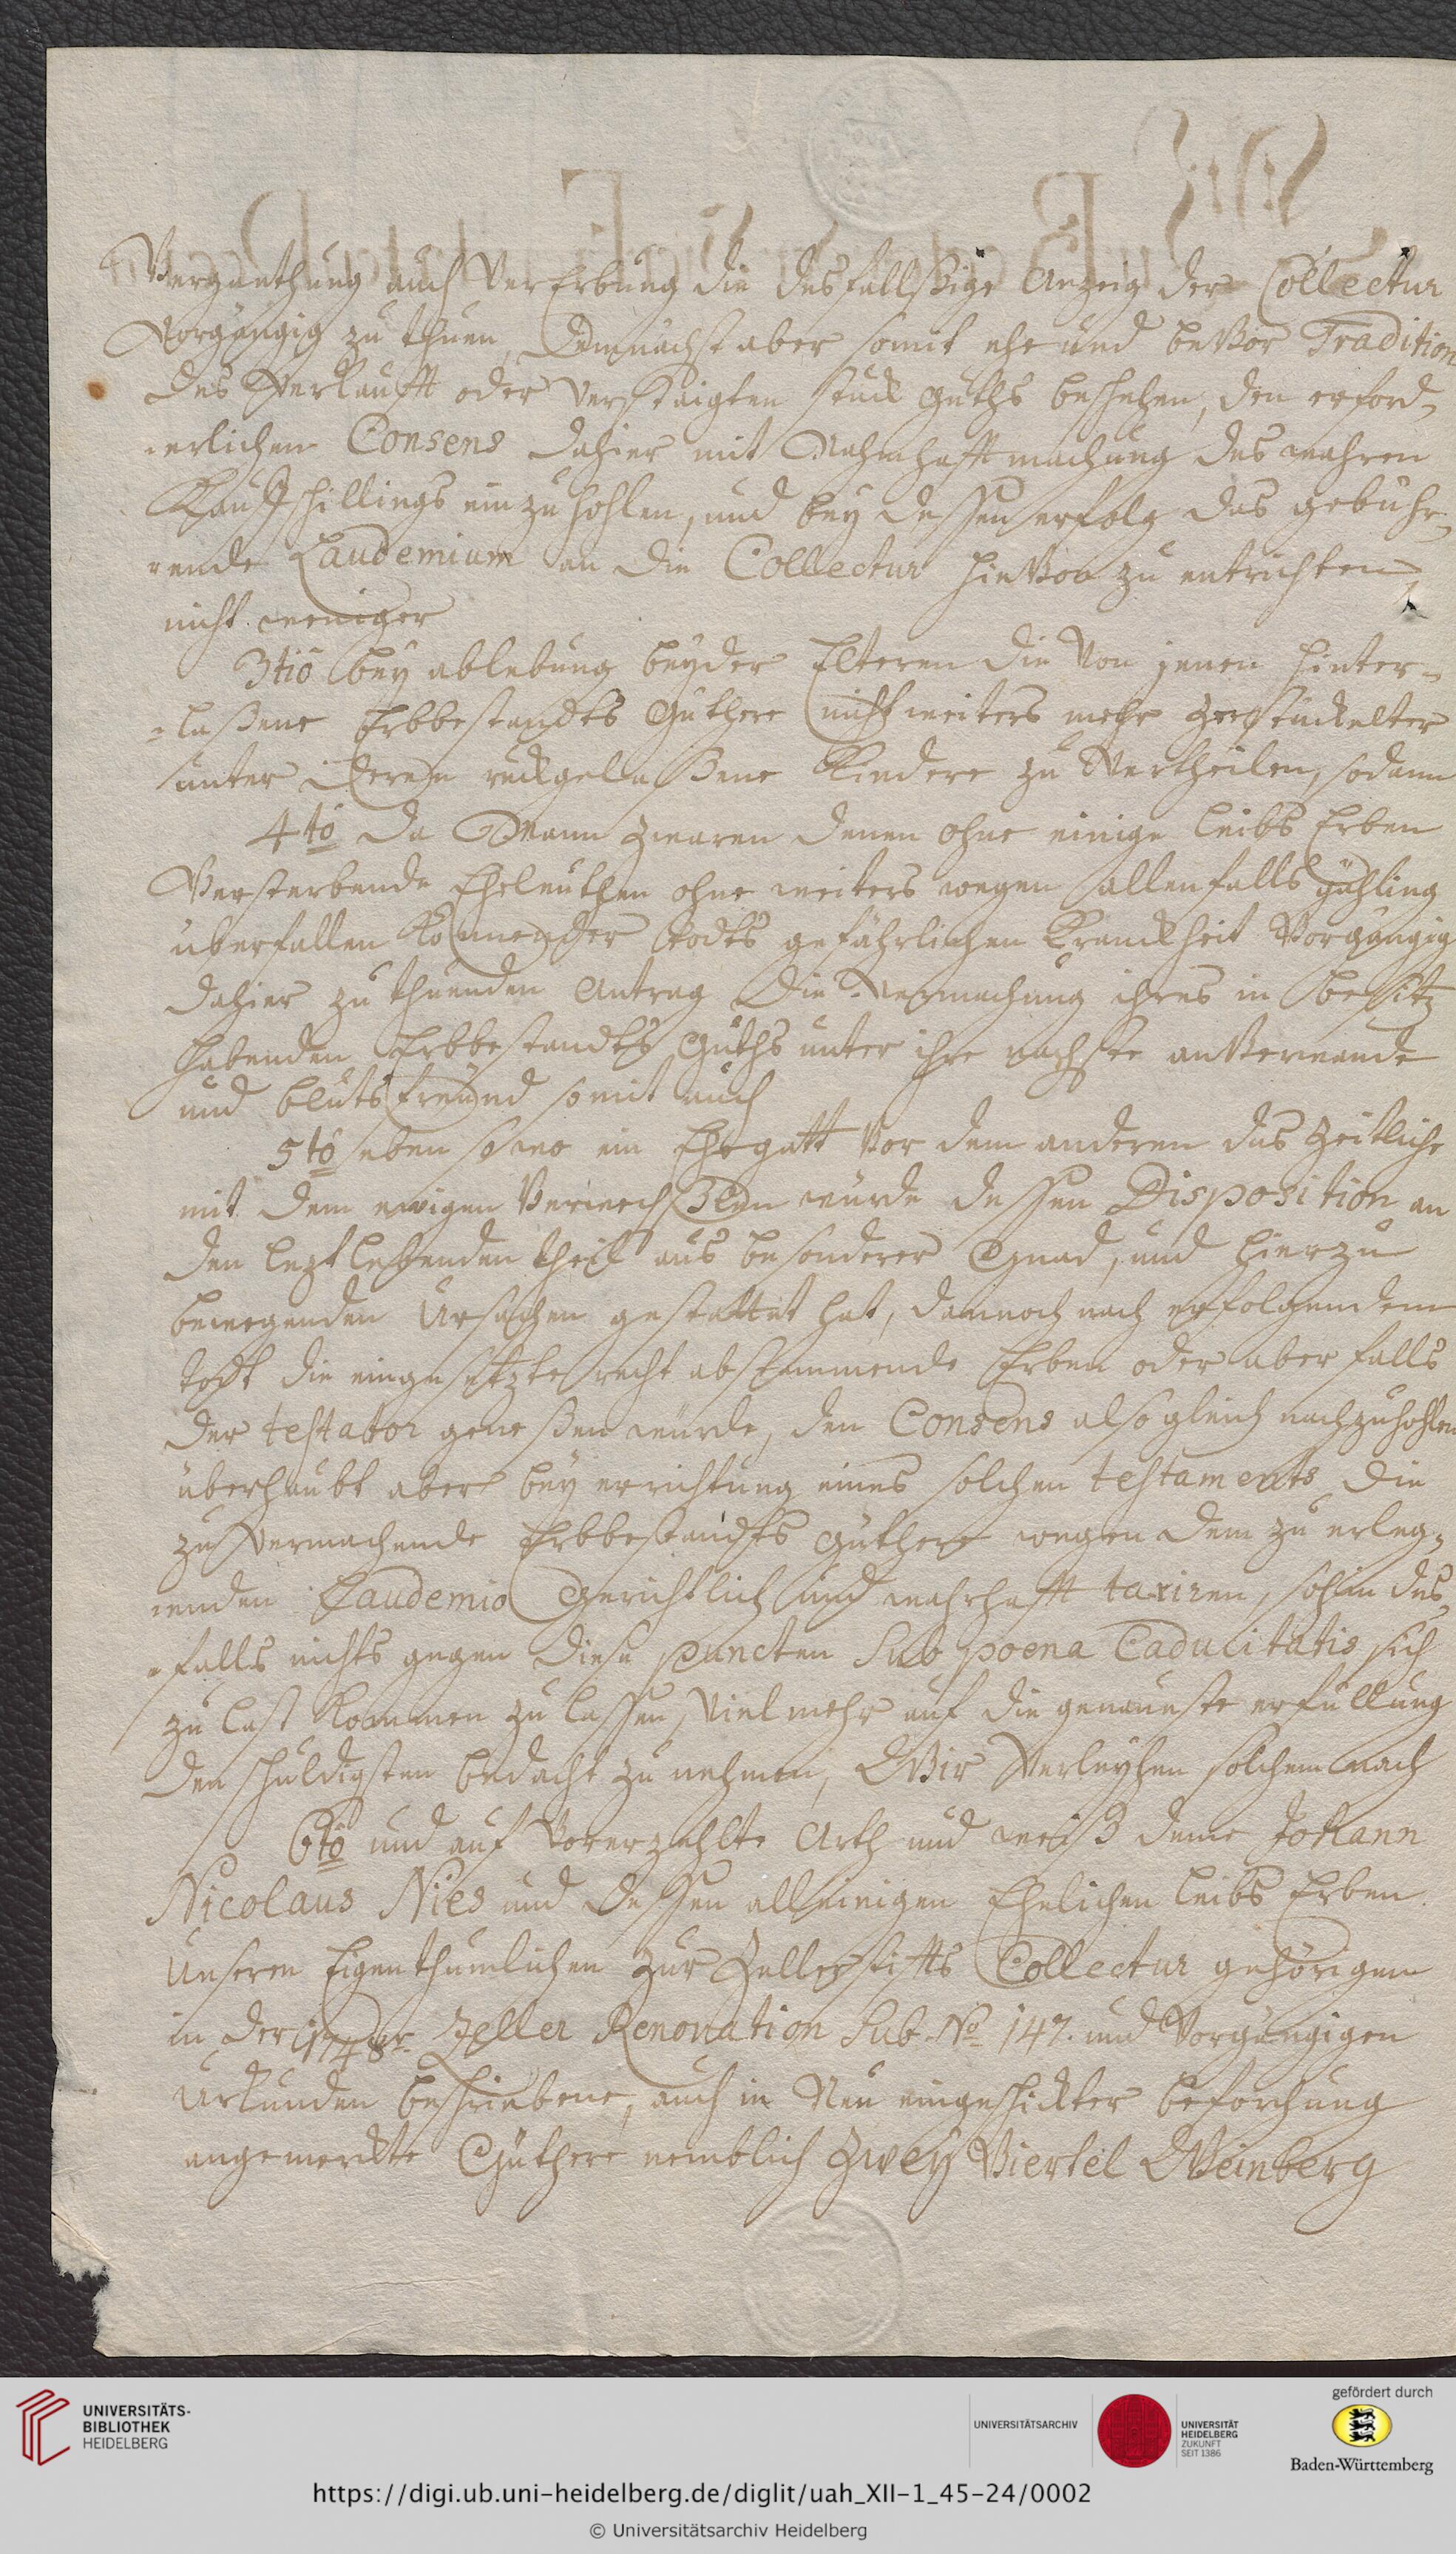 Verganthung auch VerErbung die desfallßige Anzeig der Collectur
Vorgängig zu thuen, Demnächst aber somit ehe und beVor Tradition
des Verkaufft oder Versteigten stück Guths beschehen, den erford-
-erlichen Consens dahier mit Nahmhafftmachung des wahren
Kauffschillings einzuhohlen, und bey dessen erfolg das gebühr-
rende Laudemium an die Collectur hieVon zu entrichten,
nicht weniger
3tiò bey ablebung beyder Elteren die Von jenen hinter-
-laßene Erbbestandts Güthere nicht weiters mehr zerstückelter
unter deren ruckgelaßene Kindere zu Vertheilen, sodann
4tò da Wann zwaren denen ohne einige leibs Erben
Versterbende Eheleuthen ohne weiters wegen allenfalls gähling
überfallen kommender todts gefährlichen Kranckheit Vorgängig
dahier zu thuenden Antrag die Vermachung ihres in besitz
habenden Erbbestandts Guths unter ihre nechste anVerwande
und blutsfreund somit auch
5tò eben so wo ein Ehegatt Vor dem anderen das Zeitliche
mit dem ewigen Verwechßlen würde dessen Disposition an
den leztlebenden theil aus besonderer Gnad, und hierzu
bewegenden Ursachen gestattet hat, dannoch nach erfolgendem
todt die eingesetzte recht abstammende Erben oder aber falls
der testator geneßen würde, den Consens alsogleich nachzuhohlen
überhaubt aber bey errichtung eines solchen testaments die
zu Vermachende Erbbestandts Güthere wegen dem zu erleg-
-enden Laudemio Gerichtlich und wahrhafft taxiren, sohin des-
-falls nichts gegen diese puncten Sub poena Caducitatis sich
zu last kommen zu lassen, Vielmehr auf die genaueste erfüllung
den schuldigsten bedacht zu nehmen, Wir Verleyhen solchemnach
6tò und auf Vorerzehlte Arth und weiß deme Johann
Nicolaus Nies und dessen alleinigen Ehelichen leibs Erben
Unseren Eigenthumlichen zur Zellerstiffts Collectur gehörigen
in der 1748er Zeller Renovation Sub No 147. und Vorgängigen
Urkunden beschriebene, auch in Neu eingeschickter beforchung
angemerckte Güthere nemblich Zwey Viertel Weinberg
UNIVERSITÄTS-
BIBLIOTHEK
HEIDELBERG
UNIVERSITÄTSARCHIV
UNIVERSITÄT
HEIDELBERG
ZUKUNFT
SEIT 1386
gefördert durch
Baden-Württemberg
https://digi.ub.uni-heidelberg.de/diglit/uah_XII-1_45-24/0002
© Universitätsarchiv Heidelberg